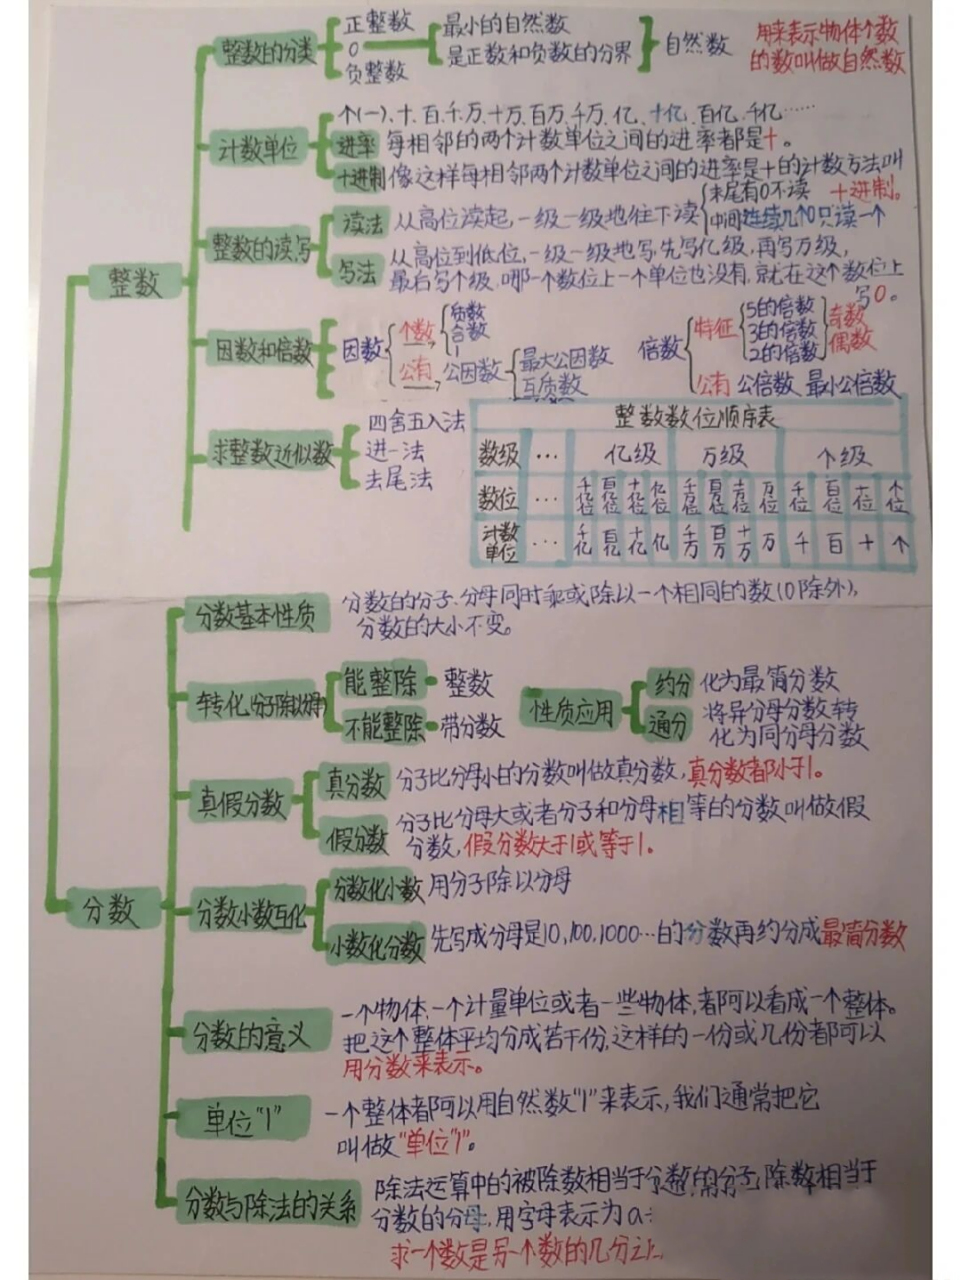 整数的分类
正整数
0
负整数
最小的自然数
是正数和负数的分界
自然数
用来表示物体个数
的数叫做自然数
计数单位
个(一)、十、百、千、万、十万、百万、千万、亿、十亿、百亿、千亿……
进率 每相邻的两个计数单位之间的进率都是十。
十进制 像这样每相邻两个计数单位之间的进率是十的计数方法叫
十进制。
整数
整数的读、写
读法 从高位读起,一级一级地往下读
末尾有0不读
中间连续几个0只读一个
写法 从高位到低位,一级一级地写,先写亿级,再写万级,
最后写个级,哪一个数位上一个单位也没有,就在这个数位上
写0。
因数和倍数
因数
个数
质数
合数
1
公有 公因数
最大公因数
互质数
倍数
特征
5的倍数
3的倍数
2的倍数
奇数
偶数
公有 公倍数 最小公倍数
求整数近似数
四舍五入法
进一法
去尾法
整数数位顺序表
数级 … 亿级 万级 个级
数位 … 千亿位 百亿位 十亿位 亿位 千万位 百万位 十万位 万位 千位 百位 十位 个位
计数单位 … 千亿 百亿 十亿 亿 千万 百万 十万 万 千 百 十 个
分数基本性质
分数的分子、分母同时乘或除以一个相同的数(0除外),
分数的大小不变。
转化(分子除以分母)
能整除 整数
不能整除 带分数
性质应用
约分 化为最简分数
通分 将异分母分数转
化为同分母分数
真假分数
真分数 分子比分母小的分数叫做真分数,真分数都小于1。
假分数 分子比分母大或者分子和分母相等的分数叫做假
分数,假分数大于1或等于1。
分数
分数小数互化
分数化小数 用分子除以分母
小数化分数 先写成分母是10,100,1000…的分数再约分成最简分数
分数的意义
一个物体、一个计量单位或者一些物体,都可以看成一个整体。
把这个整体平均分成若干份,这样的一份或几份都可以
用分数来表示。
单位"1"
一个整体都可以用自然数"1"来表示,我们通常把它
叫做"单位"1"。
分数与除法的关系
除法运算中的被除数相当于分数的分子,除数相当于
分数的分母,用字母表示为a÷
求一个数是另一个数的几分之几